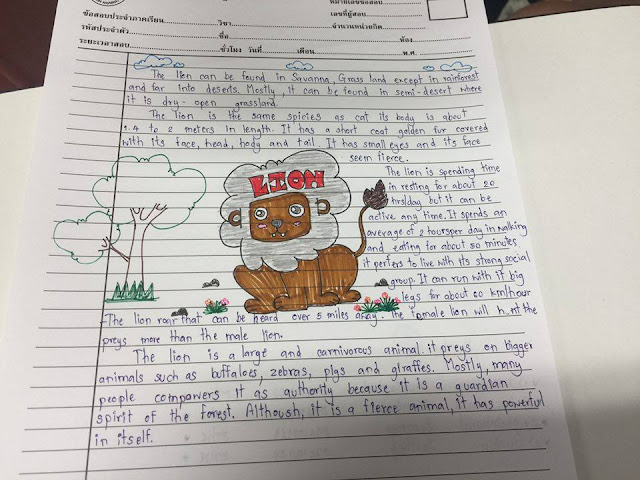 หมายเลขข้อสอบ
ข้อสอบประจำภาคเรียน วิชา เลขที่ผู้สอบ
รหัสประจำตัว ชื่อ จำนวนหน่วยกิต
ระยะเวลาสอบ ชั่วโมง วันที่ เดือน ห้อง
พ.ศ.
The lion can be found in Savanna, Grass land except in rainforest
and far into deserts. Mostly, it can be found in semi-desert where
it is dry - open grassland.
The lion is the same spicies as cat its body is about
1.4 to 2 meters in length. It has a short coat golden fur covered
with its face, head, body and tail. It has small eyes and its face
seem fierce.
LION
The lion is spending time
in resting for about 20
hrs/day but it can be
active any time. It spends an
average of 2 hours per day in walking
and eating for about 50 minutes.
it perfers to live with its strong social
group. It can run with it big
legs for about 60 km/hour
-The lion roar that can be heard over 5 miles away. The female lion will hunt the
preys more than the male lion.
The lion is a large and carnivorous animal. it preys on bigger
animals such as buffaloes, zebras, pigs and giraffes. Mostly, many
people compawers it as authority because it is a guardian
spirit of the forest. Althoush, it is a fierce animal, it has powerful
in itself.